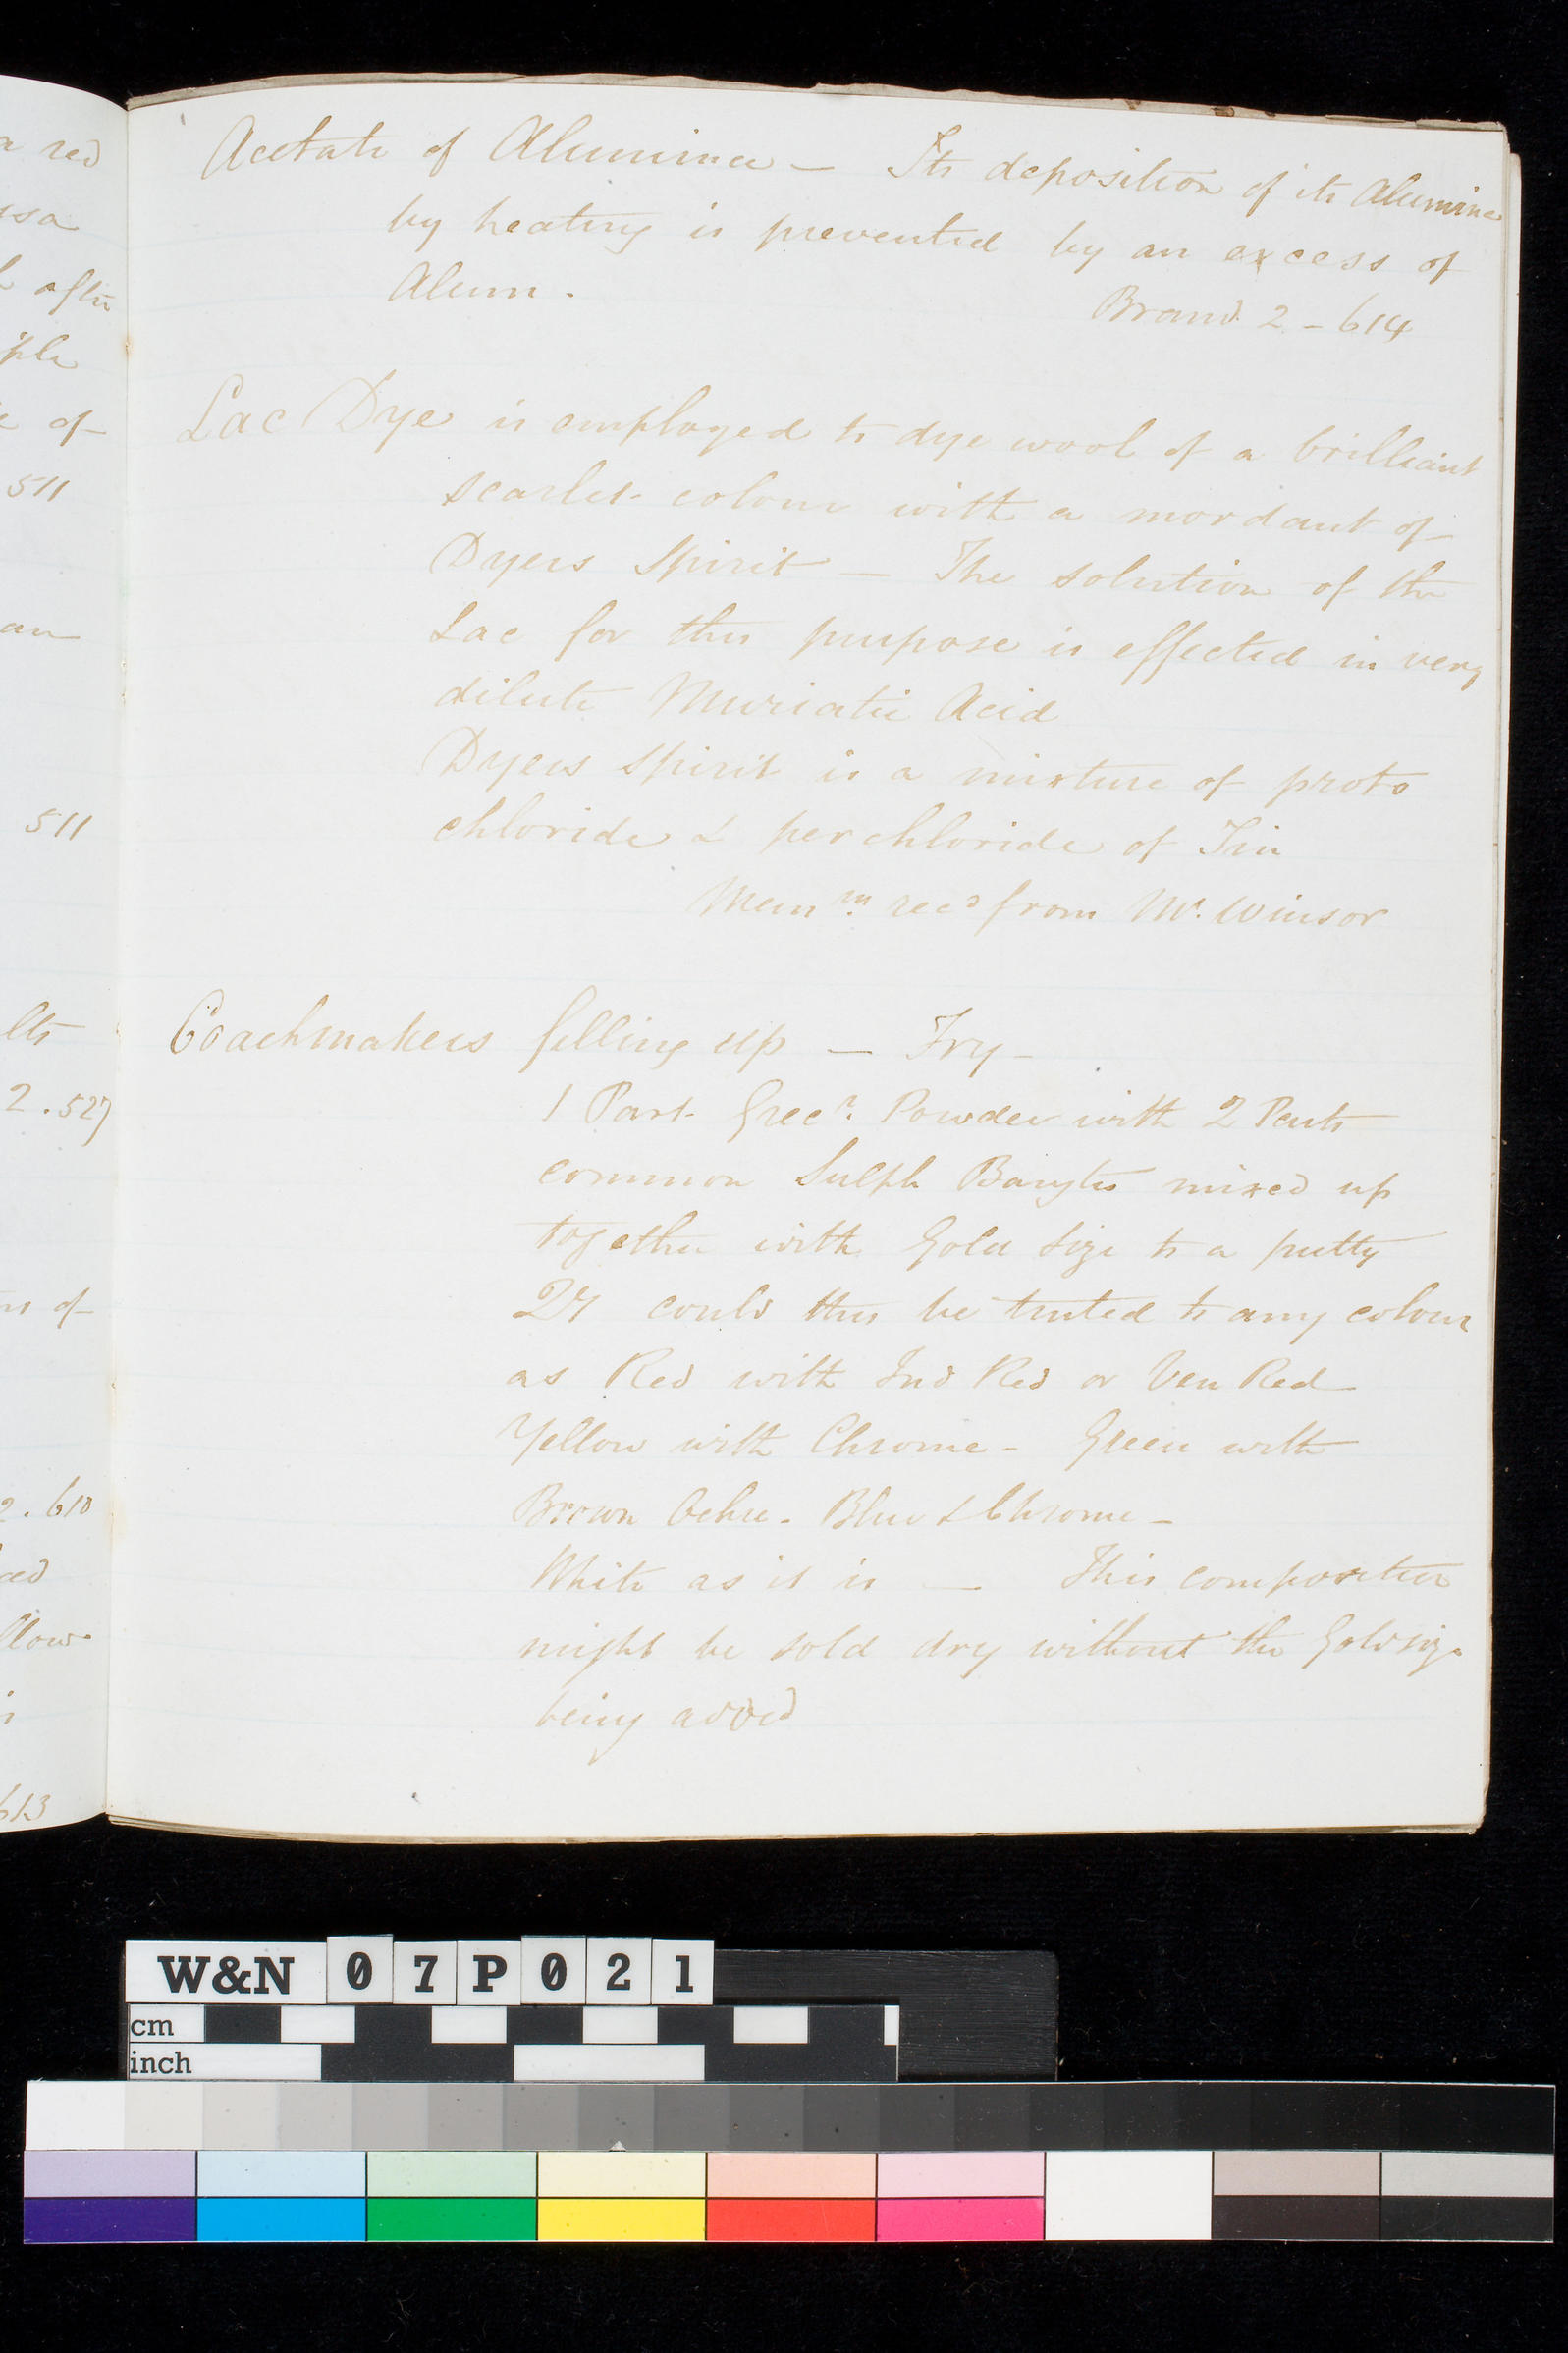 a red
ssa
after
ple
of
511
an
511
lts
2.527
of
2.610
ced
llow
613
Acetate of Alumina — Its deposition of its Alumina
by heating is prevented by an excess of
Alum.
Brand. 2 - 614
Lac Dye is employed to dye wool of a brilliant
scarlet colour with a mordant of
Dyers Spirit — The solution of the
Lac for this purpose is effected in very
dilute Muriatic Acid
Dyers Spirit is a mixture of proto
chloride & perchloride of Tin
Memm. recd from Mr. Winsor
Coachmakers filling up — Try —
1 Part Powder with 2 Parts
common Sulph Barytes mixed up
together with Gold Size to a putty
Qy could this be tinted to any colour
as Red with Ind Red or Ven Red
Yellow with Chrome - Green with
Brown Ochre - Blue & Chrome -
White as it is — This composition
might be sold dry without the Gold size
being added
W&N 07P021
cm
inch